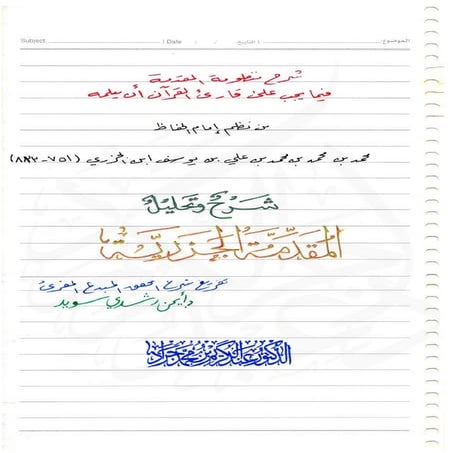 Subject. Date / / التاريخ الموضوع
شرح منظومة المقدمة
فيما يجب على قارئ القرآن أن يعلمه
من نظم إمام الحفاظ
محمد بن محمد بن محمد بن علي بن يوسف ابن الجزري (٧٥١-٨٣٣)
شرح وتحليل
المقدمة الجزرية
شرح المحقق المبدع المقرئ
د/أيمن رشدي سويد
الدكتور عبد الكريم بن محمد جراد